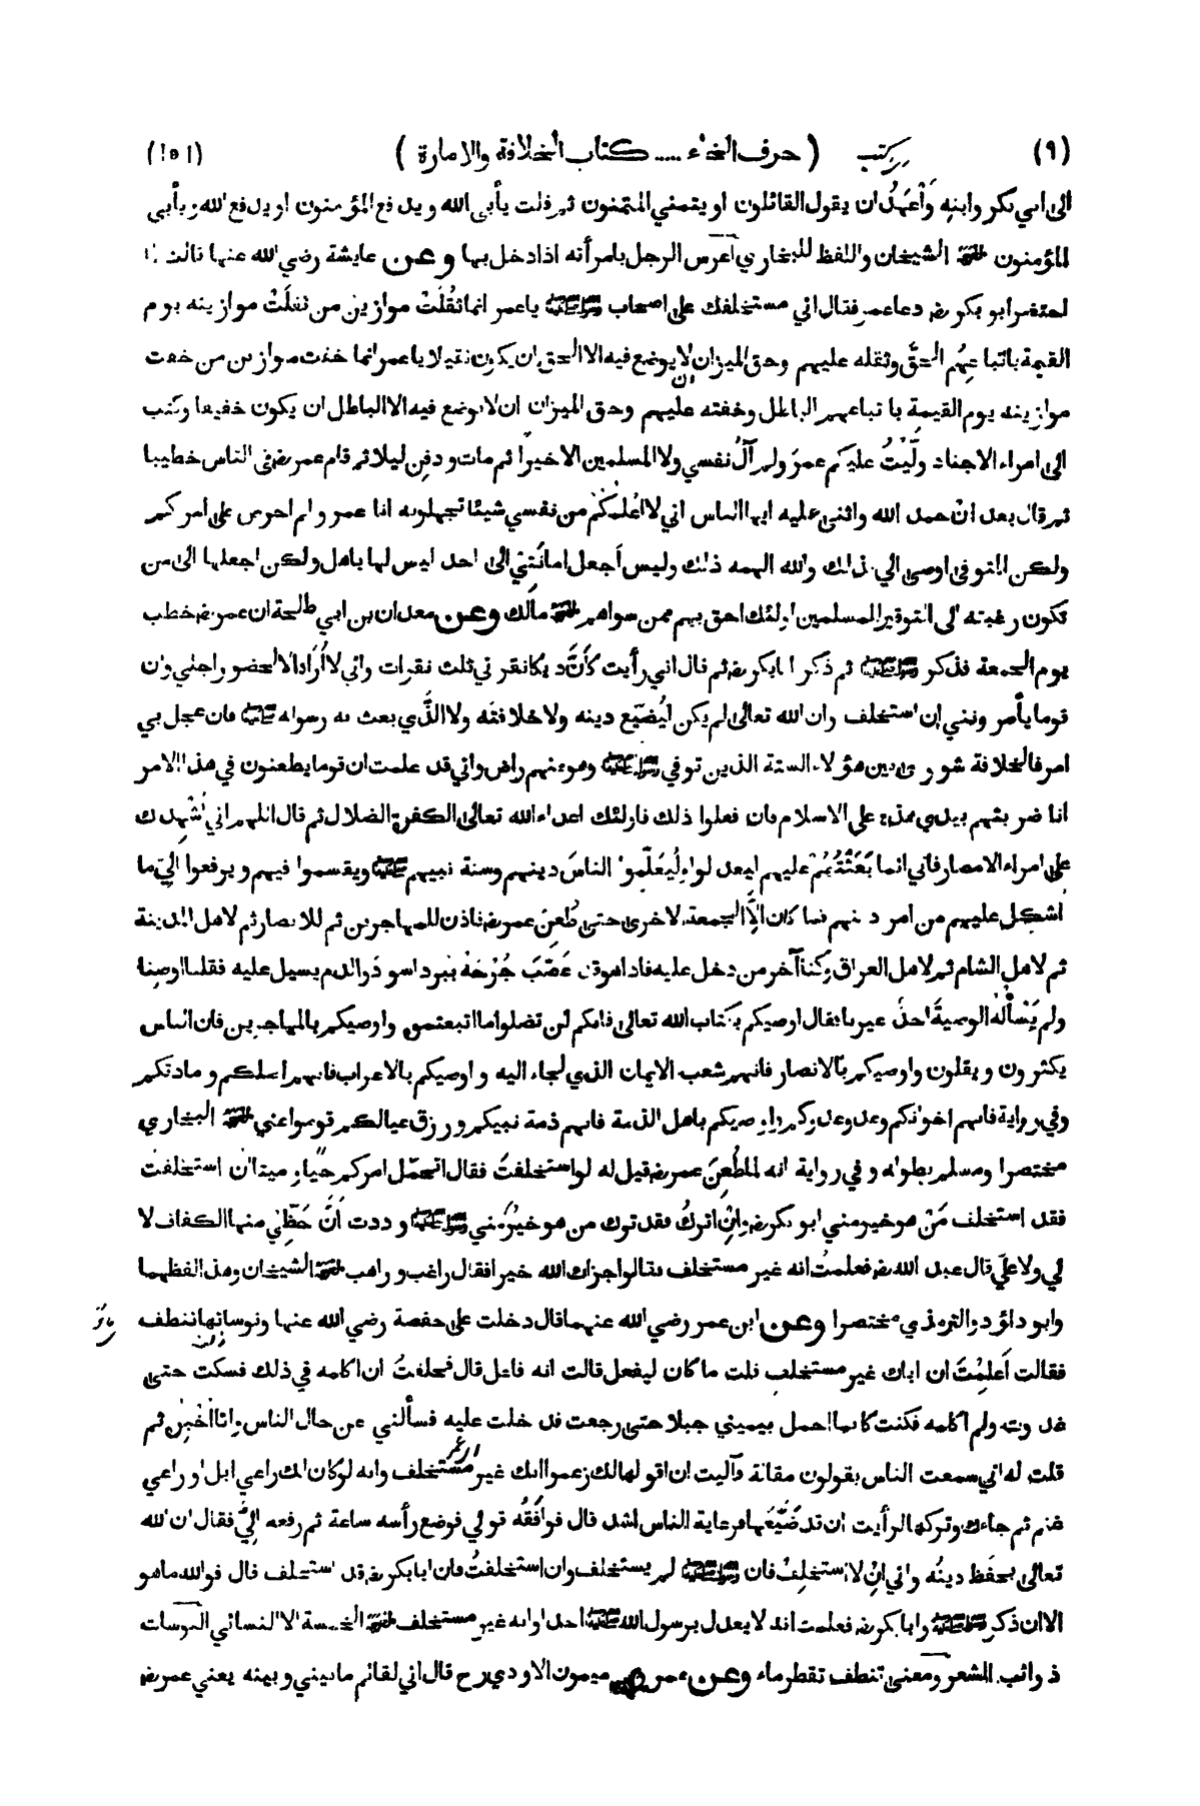 (٩) (حرف الخاء ..... كتاب الخلافة والامارة) (١٥١)
الى ابي بكر وابنه وَاَعْهَدُ ان يقول القائلون او يتمني المتمنون ثم قلت يأبى الله ويدفع المؤمنون او يدفع الله ويأبى
المؤمنون الشيخان واللفظ للبخاري اَعرس الرجل بامرأته اذا دخل بها وعن عايشة رضي الله عنها قالت لما
احتضر ابو بكر رضـ دعا عمر فقال اني مستخلفك على اصحاب ياعمر انما ثقُلتْ موازين من ثقلَتْ موازينه يوم
القيمة باتباعهم الحقَّ وثقله عليهم وحق لميزان لا يوضع فيه الا الحق ان يكون ثقيلا يا عمر انما خفت موازين من خفت
موازينه يوم القيمة باتباعهم الباطل وخفته عليهم وحق لميزان ان لا يوضع فيه الا الباطل ان يكون خفيفا وكتب
الى امراء الاجناد ولَّيْتُ عليكم عمرَ ولم آلُ نفسي ولا المسلمين الا خيرا ثم مات ودفن ليلا ثم قام عمر رضـ فى الناس خطيبا
ثم قال بعد انْ حمد الله واثنى عليه ايها الناس اني لا اُعْلمُكم من نفسي شيئا تجهلونه انا عمر ولم احرص على امركم
ولكن المتوفى اوصى الي بذلك والله الهمه ذلك وليس اَجعل امانَتِيْ الى احد ليس لها باهل ولكن اجعلها الى من
تكون رغبته في التوقير للمسلمين اولئك احق بهم ممن سواهم مالك وعن معدان بن ابي طلحة ان عمر رضـ خطب
يوم الجمعة فذكر ثم ذكر ابابكر رضـ ثم قال اني رأيت كأَنَّ ديكا نقرني ثلث نقرات واني لا اُرَاه الا لحضور اجلي وان
قوما يأمرونني ان استخلف وان الله تعالى لم يكن ليُضَيِّع دينه ولا خلافته ولا الذَّي بعث به رسوله فان عجل بي
امر فالخلافة شورى بين هؤلاء الستة الذين توفي وهو عنهم راض واني قد علمت ان قوما يطعنون في هذا الامر
انا ضربتهم بيدي هذه على الاسلام فان فعلوا ذلك فاولئك اعداء الله تعالى الكفرة الضلال ثم قال اللهم اني اُشْهِدك
على امراء الامصار فاني انما بَعَثْتُهُمْ عليهم ليعدلوا ولِيُعَلِّموا الناسَ دينهم وسنة نبيهم ويقسموا فيهم ويرفعوا اليَّ ما
اشكل عليهم من امر دينهم فما كان الَّا الجمعة الاخرى حتى طُعِنَ عمر رضـ فاذن للمهاجرين ثم للانصار ثم لاهل المدينة
ثم لاهل الشام ثم لاهل العراق وكنا آخر من دخل عليه فاذا هو قد عَصَّبَ جُرْحَهُ ببرد اسود والدم يسيل عليه فقلنا اوصِنا
ولم يَسْأَلْهُ الوصيةَ احدٌ غيرنا فقال اوصيكم بكتاب الله تعالى فانكم لن تضلوا ما اتبعتموه واوصيكم بالمهاجرين فان الناس
يكثرون ويقلون واوصيكم بالانصار فانهم شعب الايمان الذي لجاء اليه واوصيكم بالاعراب فانهم اصلكم ومادتكم
وفي رواية فانهم اخوانكم وعدو عدوكم واوصيكم باهل الذمة فانهم ذمة نبيكم ورزق عيالكم قوموا عني البخاري
مختصرا ومسلم بطوله وفي رواية انه لما طُعِنَ عمر رضـ قيل له لو استخلفتَ فقال اتحمّل امركم حيًّا وميتا ان استخلفت
فقد استخلف مَنْ هو خير مني ابو بكر رضـ وإنْ اَتركُ فقد ترك من هو خيرٌ مني وددت اَنَّ حَظِّي منها الكفاف لا
لي ولا عليَّ قال عبد الله رضـ فعلمتُ انه غير مستخلف فقالوا جزاك الله خيرا فقال راغب وراهب الشيخان وهذا لفظهما
وابو داؤد والترمذي مختصرا وعن ابن عمر رضي الله عنهما قال دخلت على حفصة رضي الله عنها ونوساتها تنطف
فقالت اَعلِمْتَ ان اباك غير مستخلف قلت ما كان ليفعل قالت انه فاعل قال فحلفتُ ان اكلمه في ذلك فسكت حتى
غدوت ولم اكلمه فكنت كانما احمل بيميني جبلا حتى رجعت فدخلت عليه فسألني عن حال الناس وانا اُخْبِرُه ثم
قلت له اني سمعت الناس يقولون مقالة فآليت ان اقولها لك زعموا انك غير مستخلف وانه لو كان لك راعي ابل او راعي
غنم ثم جاءك وتركها لرأيت ان قد ضَيَّعَها فرعاية الناس اشد قال فوافَقَهُ قولي فوضع رأسه ساعة ثم رفعه اليَّ فقال ان الله
تعالى يحفظ دينُه واني اِنْ لا استخلِفْ فان لم يستخلف وان استخلفتُ فان ابابكر رضـ قد استخلف قال فوالله ما هو
الا ان ذكر وابابكر رضـ فعلمت انه لا يعدل برسول الله احدا وانه غير مستخلف الخمسة الا النسائي النوسات
ذوائب الشعر ومعنى تنطف تقطر ماء وعن عمرو ميمون الاودي رح قال اني لقائم ما بيني وبينه يعني عمر رضـ